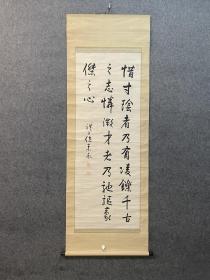 惜寸陰者乃有凌鑠千古
之志憐微才者乃馳驅豪
傑之心